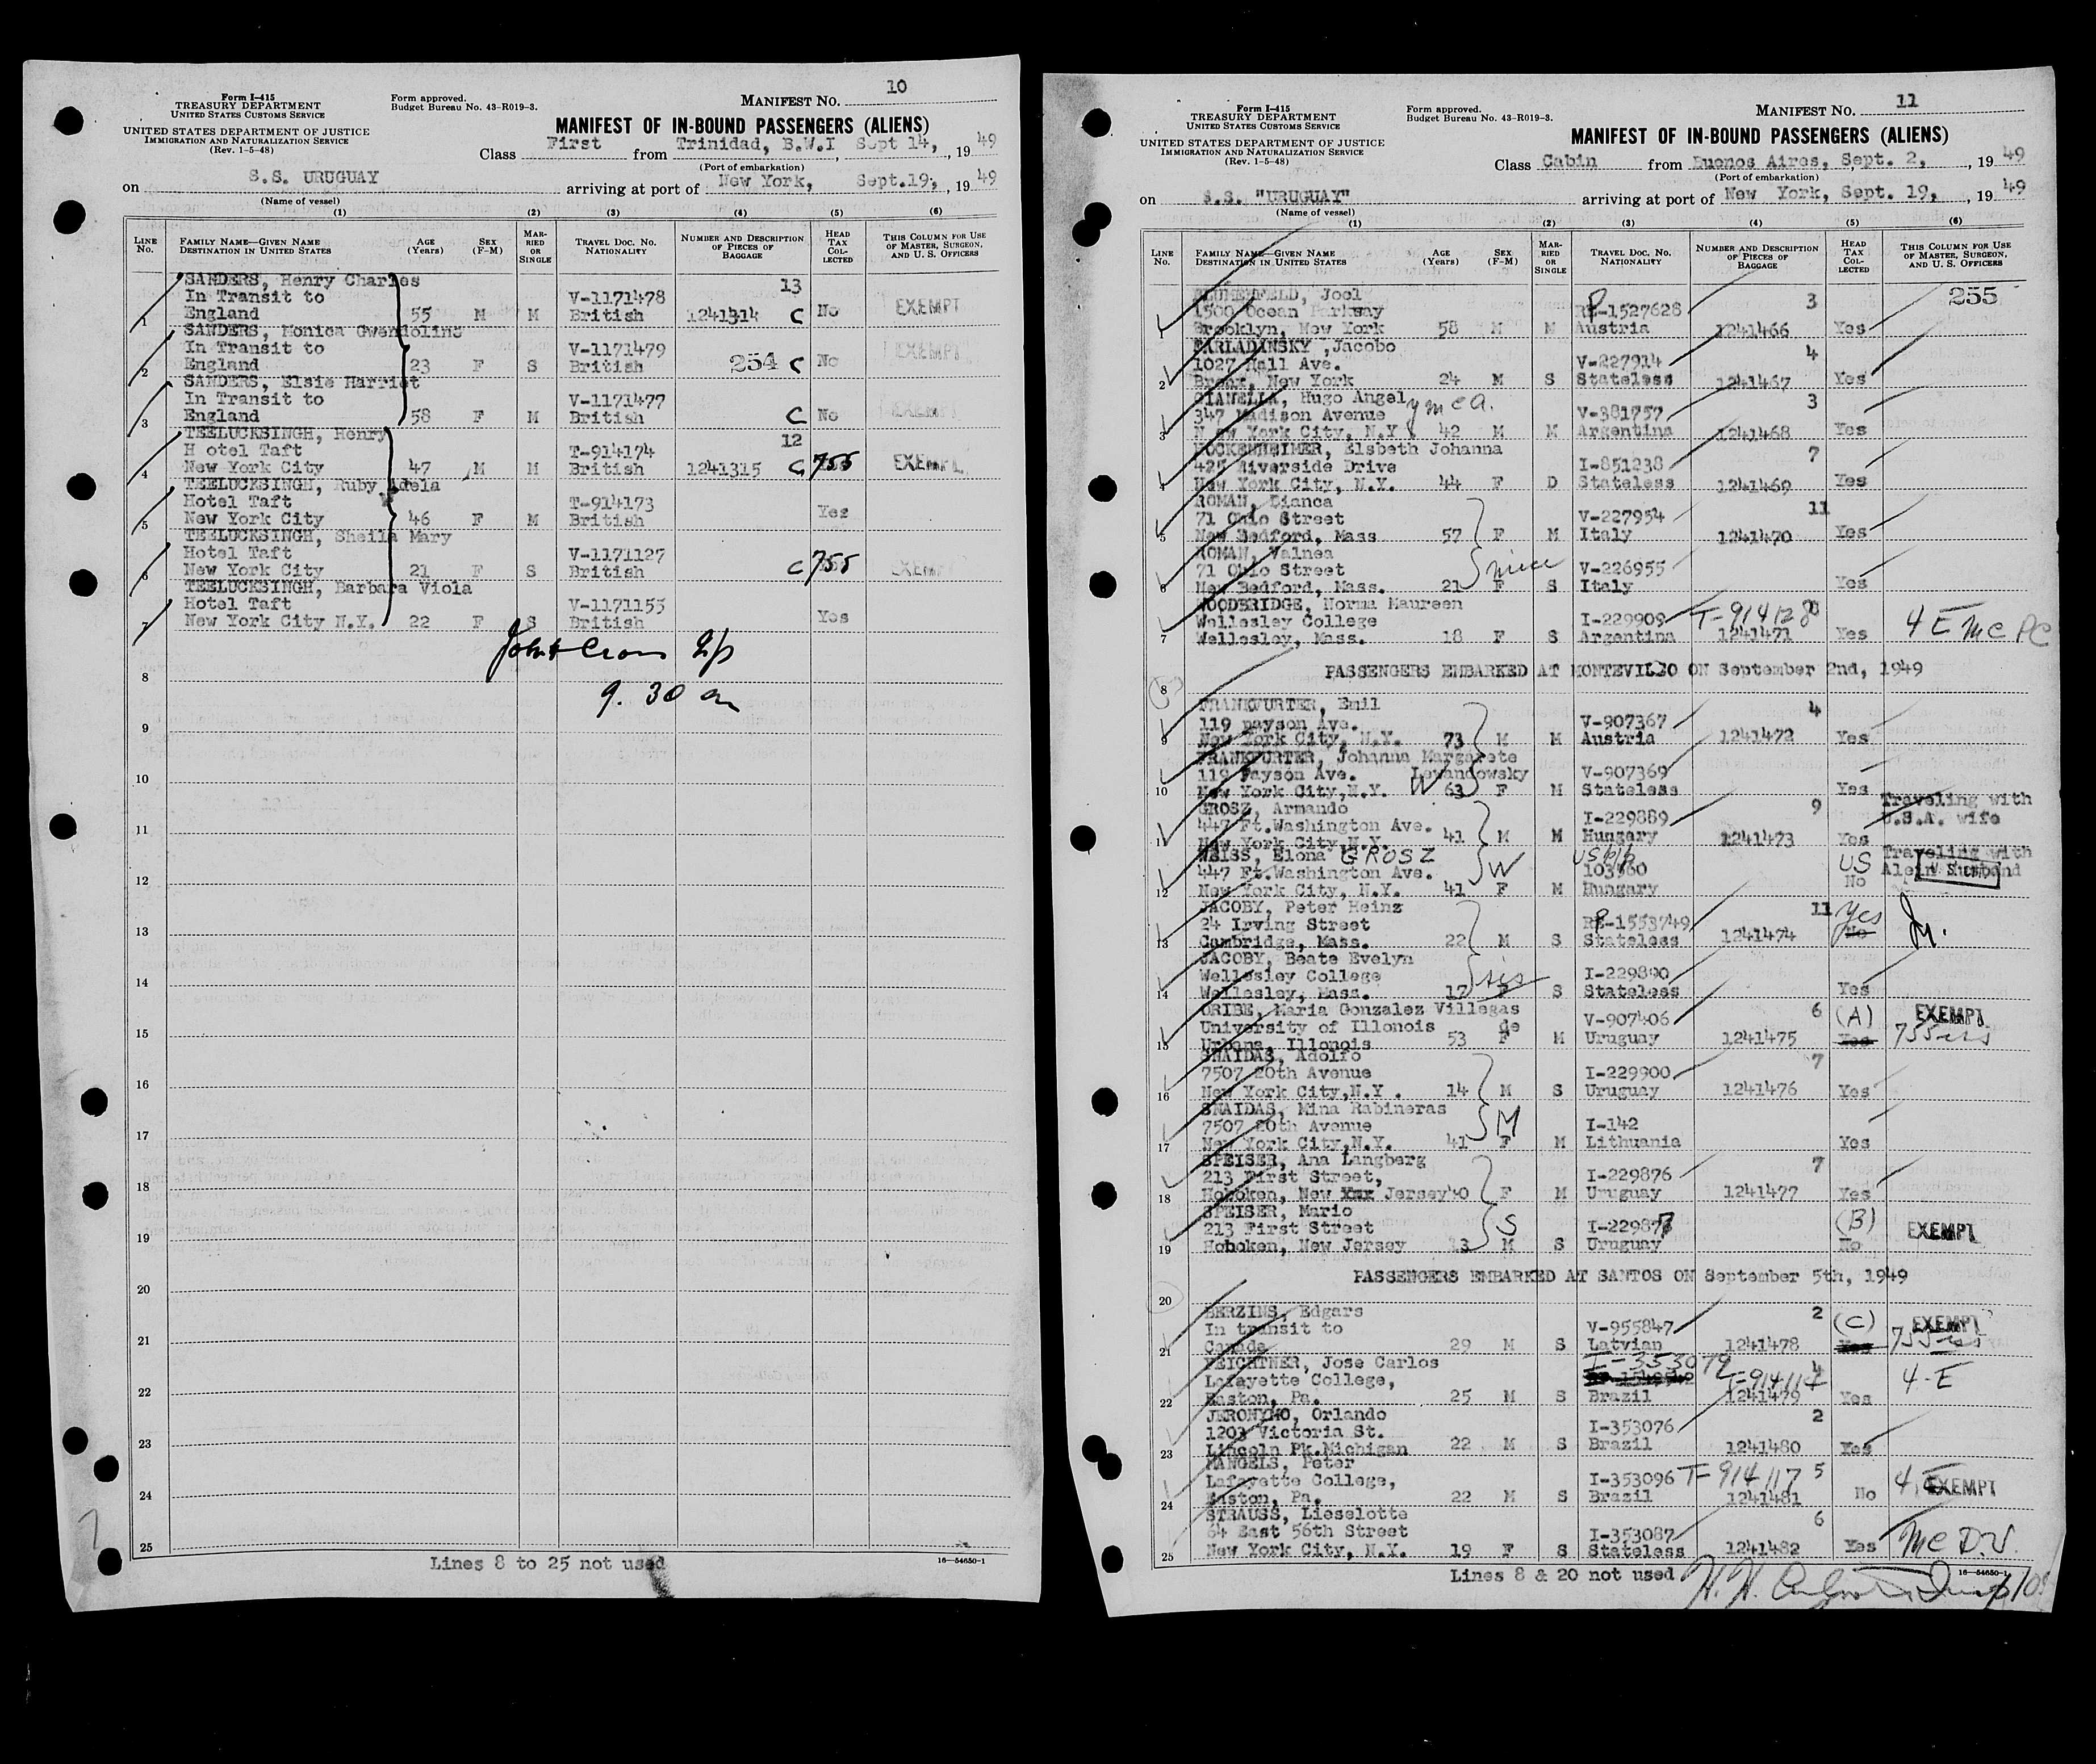 Form I-415
TREASURY DEPARTMENT
UNITED STATES CUSTOMS SERVICE
UNITED STATES DEPARTMENT OF JUSTICE
IMMIGRATION AND NATURALIZATION SERVICE
(Rev. 1-5-48)
Form approved.
Budget Bureau No. 43-R019-3.
MANIFEST NO. 10
MANIFEST OF IN-BOUND PASSENGERS (ALIENS)
Class First from Trinidad, B.W.I Sept 14, , 1949
(Port of embarkation)
on S.S. URUGUAY arriving at port of New York, Sept.19, , 1949
(Name of vessel)
(1) (2) (3) (4) (5) (6)
LINE NO. FAMILY NAME—GIVEN NAME DESTINATION IN UNITED STATES AGE (Years) SEX (F-M) MARRIED OR SINGLE TRAVEL DOC. NO. NATIONALITY NUMBER AND DESCRIPTION OF PIECES OF BAGGAGE HEAD TAX COLLECTED THIS COLUMN FOR USE OF MASTER, SURGEON, AND U. S. OFFICERS
SANDERS, Henry Charles 13
In Transit to V-1171478
1 England 55 M M British 1241314 C No EXEMPT
SANDERS, Monica Gwendoline
In Transit to V-1171479
2 England 23 F S British 254 C No EXEMPT
SANDERS, Elsie Harriet
In Transit to V-1171477
3 England 58 F M British C No EXEMPT
TEELUCKSINGH, Henry 12
H otel Taft T-914174
4 New York City 47 M M British 1241315 C 755 EXEMPT
TEELUCKSINGH, Ruby Adela
Hotel Taft T-914173
5 New York City 46 F M British Yes
TEELUCKSINGH, Sheila Mary
Hotel Taft V-1171127
6 New York City 21 F S British C 755 EXEMPT
TEELUCKSINGH, Barbara Viola
Hotel Taft V-1171155
7 New York City N.Y. 22 F S British Yes
8
9. 30 am
9
10
11
12
13
14
15
16
17
18
19
20
21
22
23
24
25
Lines 8 to 25 not used
16—54650-1
Form I-415
TREASURY DEPARTMENT
UNITED STATES CUSTOMS SERVICE
UNITED STATES DEPARTMENT OF JUSTICE
IMMIGRATION AND NATURALIZATION SERVICE
(Rev. 1-5-48)
Form approved.
Budget Bureau No. 43-R019-3.
MANIFEST NO. 11
MANIFEST OF IN-BOUND PASSENGERS (ALIENS)
Class Cabin from Buenos Aires, Sept. 2, , 1949
(Port of embarkation)
on S.S. "URUGUAY" arriving at port of New York, Sept. 19, , 1949
(Name of vessel)
(1) (2) (3) (4) (5) (6)
LINE NO. FAMILY NAME—GIVEN NAME DESTINATION IN UNITED STATES AGE (Years) SEX (F-M) MARRIED OR SINGLE TRAVEL DOC. NO. NATIONALITY NUMBER AND DESCRIPTION OF PIECES OF BAGGAGE HEAD TAX COLLECTED THIS COLUMN FOR USE OF MASTER, SURGEON, AND U. S. OFFICERS
BLUMENFELD, Joel 3 255
1500 Ocean Parkway RP-1527628
1 Brooklyn, New York 58 M M Austria 1241466 Yes
TARLADANSKY ,Jacobo 4
1027 Hall Ave. V-227914
2 Bronx, New York 24 M S Stateless 1241467 Yes
GIANELLA, Hugo Angel ymca. 3
347 Madison Avenue V-381757
3 N ew York City, N.Y. 42 M M Argentina 1241468 Yes
HOCKENHEIMER, Elsbeth Johanna 7
425 Riverside Drive I-851238
4 New York City, N.Y. 44 F D Stateless 1241469 Yes
ROMAN, Bianca 11
71 Ohio Street V-227954
5 New Bedford, Mass 57 F M Italy 1241470 Yes
ROMAN, Valnea niece
71 Ohio Street V-226955
6 New Bedford, Mass. 21 F S Italy Yes
WOODBRIDGE, Norma Maureen
Wellesley College I-229909 T-914128
7 Wellesley, Mass. 18 F S Argentina 1241471 Yes 4 E MC PC
8 PASSENGERS EMBARKED AT MONTEVIDEO ON September 2nd, 1949
FRANKFURTER, Emil 4
119 payson Ave. V-907367
9 New York City, N.Y. 73 M M Austria 1241472 Yes
FRANKFURTER, Johanna Margarete
119 Payson Ave. Lewandowsky V-907369
10 New York City,N.Y. W 63 F M Stateless Yes
GROSZ, Armando 9 Traveling with
447 Ft.Washington Ave. I-229889 U.S.A. wife
11 New York City,N.Y. 41 M M Hungary 1241473 Yes
WEISS, Elona GROSZ US Traveling with
447 Ft.Washington Ave. W 103960 US Alein Husband
12 New York City, N.Y. 41 F M Hungary No
JACOBY, Peter Heinz 11 Yes
24 Irving Street RP-1553749
13 Cambridge, Mass. 22 M S Stateless 1241474 No
JACOBY, Beate Evelyn
Wellesley College sis I-229890
14 Wellesley, Mass. 17 F S Stateless Yes
ORIBE, Maria Gonzalez Villegas 6 (A) EXEMPT
University of Illonois de V-907406
15 Urbana, Illonois 53 F M Uruguay 1241475 Yes
SNAIDAS, Adolfo 7
7507 20th Avenue I-229900
16 New York City,N.Y . 14 M S Uruguay 1241476 Yes
SNAIDAS, Mina Rabineras
7507 20th Avenue M I-142
17 New York City,N.Y. 41 F M Lithuania Yes
SPEISER, Ana Langberg 7
213 First Street, I-229876
18 Hoboken, New Jersey 40 F M Uruguay 1241477 Yes
SPEISER, Mario (B)
213 First Street S I-22987 EXEMPT
19 Hoboken, New Jersey 13 M S Uruguay No
20 PASSENGERS EMBARKED AT SANTOS ON September 5th, 1949
BERZINS, Edgars 2 (C) EXEMPT
In transit to V-955847
21 Canada 29 M S Latvian 1241478 Yes
FEICHTNER, Jose Carlos I-353079 4
Lafayette College, T-914114 4-E
22 Easton, Pa. 25 M S Brazil 1241479 Yes
JERONYMO, Orlando 2
1203 Victoria St. I-353076
23 Lincoln Pk.Michigan 22 M S Brazil 1241480 Yes
MANGELS, Peter
Lafayette College, I-353096 T-914117 5 4-E EXEMPT
24 Easton, Pa. 22 M S Brazil 1241481 No
STRAUSS, Lieselotte 6
64 East 56th Street I-353087
25 New York City, N.Y. 19 F S Stateless 1241482 Yes MC D.V.
Lines 8 & 20 not used
16—54650-1